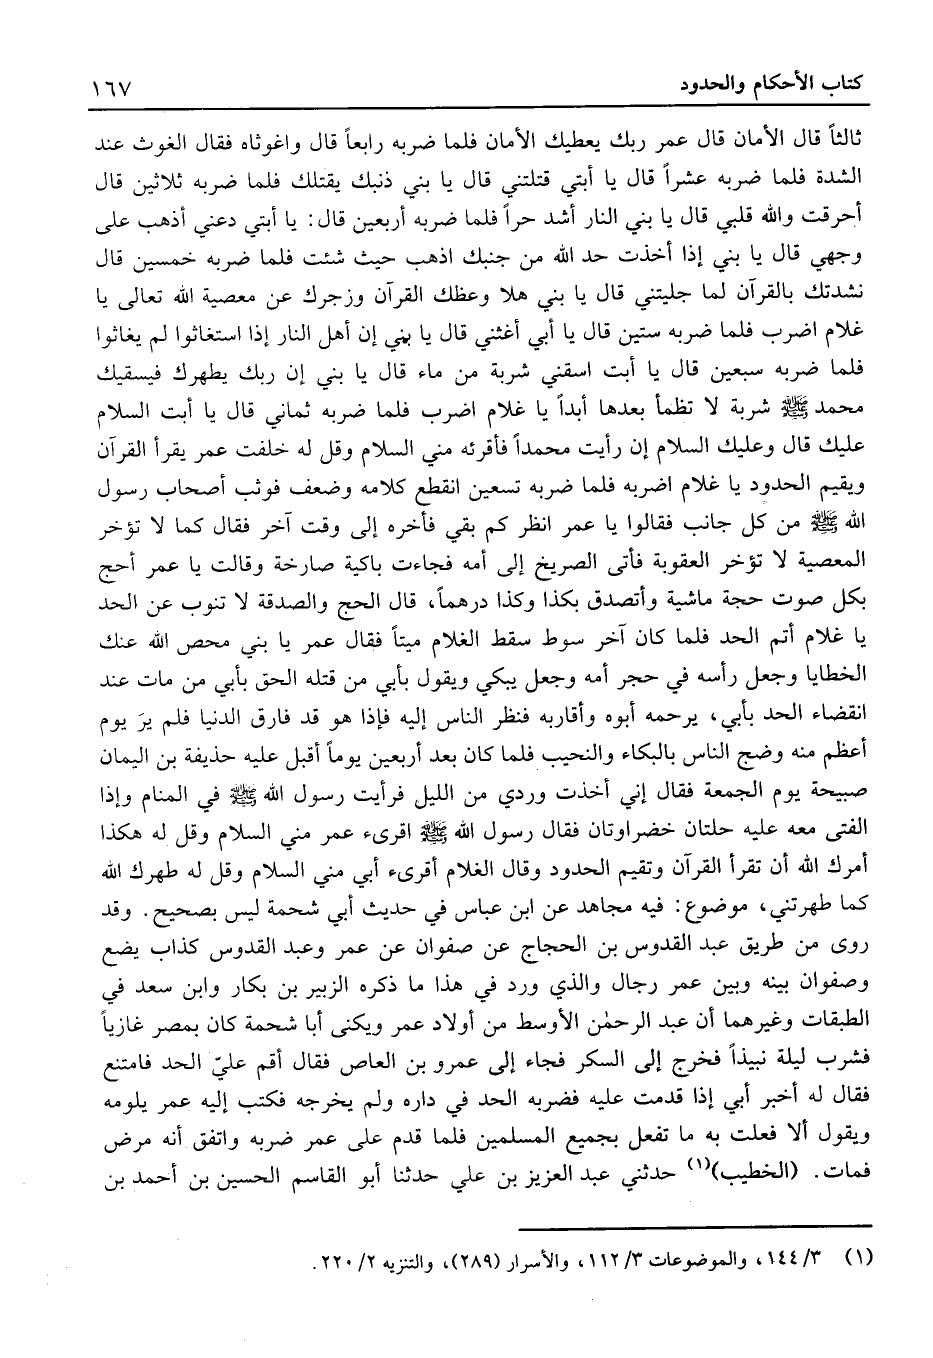 كتاب الأحكام والحدود ١٦٧
ثالثاً قال الأمان قال عمر ربك يعطيك الأمان فلما ضربه رابعاً قال واغوثاه فقال الغوث عند
الشدة فلما ضربه عشراً قال يا أبتي قتلتني قال يا بني ذنبك يقتلك فلما ضربه ثلاثين قال
أحرقت والله قلبي قال يا بني النار أشد حراً فلما ضربه أربعين قال: يا أبتي دعني أذهب على
وجهي قال يا بني إذا أخذت حد الله من جنبك اذهب حيث شئت فلما ضربه خمسين قال
نشدتك بالقرآن لما جليتني قال يا بني هلا وعظك القرآن وزجرك عن معصية الله تعالى يا
غلام اضرب فلما ضربه ستين قال يا أبي أغثني قال يا بني إن أهل النار إذا استغاثوا لم يغاثوا
فلما ضربه سبعين قال يا أبت اسقني شربة من ماء قال يا بني إن ربك يطهرك فيسقيك
محمد ﷺ شربة لا تظمأ بعدها أبداً يا غلام اضرب فلما ضربه ثماني قال يا أبت السلام
عليك قال وعليك السلام إن رأيت محمداً فأقرئه مني السلام وقل له خلفت عمر يقرأ القرآن
ويقيم الحدود يا غلام اضربه فلما ضربه تسعين انقطع كلامه وضعف فوثب أصحاب رسول
الله ﷺ من كل جانب فقالوا يا عمر انظر كم بقي فأخره إلى وقت آخر فقال كما لا تؤخر
المعصية لا تؤخر العقوبة فأتى الصريخ إلى أمه فجاءت باكية صارخة وقالت يا عمر أحج
بكل صوت حجة ماشية وأتصدق بكذا وكذا درهماً، قال الحج والصدقة لا تنوب عن الحد
يا غلام أتم الحد فلما كان آخر سوط سقط الغلام ميتاً فقال عمر يا بني محص الله عنك
الخطايا وجعل رأسه في حجر أمه وجعل يبكي ويقول بأبي من قتله الحق بأبي من مات عند
انقضاء الحد بأبي، يرحمه أبوه وأقاربه فنظر الناس إليه فإذا هو قد فارق الدنيا فلم يرَ يوم
أعظم منه وضج الناس بالبكاء والنحيب فلما كان بعد أربعين يوماً أقبل عليه حذيفة بن اليمان
صبيحة يوم الجمعة فقال إني أخذت وردي من الليل فرأيت رسول الله ﷺ في المنام وإذا
الفتى معه عليه حلتان خضراوتان فقال رسول الله ﷺ اقرىء عمر مني السلام وقل له هكذا
أمرك الله أن تقرأ القرآن وتقيم الحدود وقال الغلام أقرىء أبي مني السلام وقل له طهرك الله
كما طهرتني، موضوع: فيه مجاهد عن ابن عباس في حديث أبي شحمة ليس بصحيح. وقد
روى من طريق عبد القدوس بن الحجاج عن صفوان عن عمر وعبد القدوس كذاب يضع
وصفوان بينه وبين عمر رجال والذي ورد في هذا ما ذكره الزبير بن بكار وابن سعد في
الطبقات وغيرهما أن عبد الرحمٰن الأوسط من أولاد عمر ويكنى أبا شحمة كان بمصر غازياً
فشرب ليلة نبيذاً فخرج إلى السكر فجاء إلى عمرو بن العاص فقال أقم عليّ الحد فامتنع
فقال له أخبر أبي إذا قدمت عليه فضربه الحد في داره ولم يخرجه فكتب إليه عمر يلومه
ويقول ألا فعلت به ما تفعل بجميع المسلمين فلما قدم على عمر ضربه واتفق أنه مرض
فمات. (الخطيب)(١) حدثني عبد العزيز بن علي حدثنا أبو القاسم الحسين بن أحمد بن
(١) ١٤٤/٣، والموضوعات ١١٢/٣، والأسرار (٢٨٩)، والتنزيه ٢٢٠/٢.